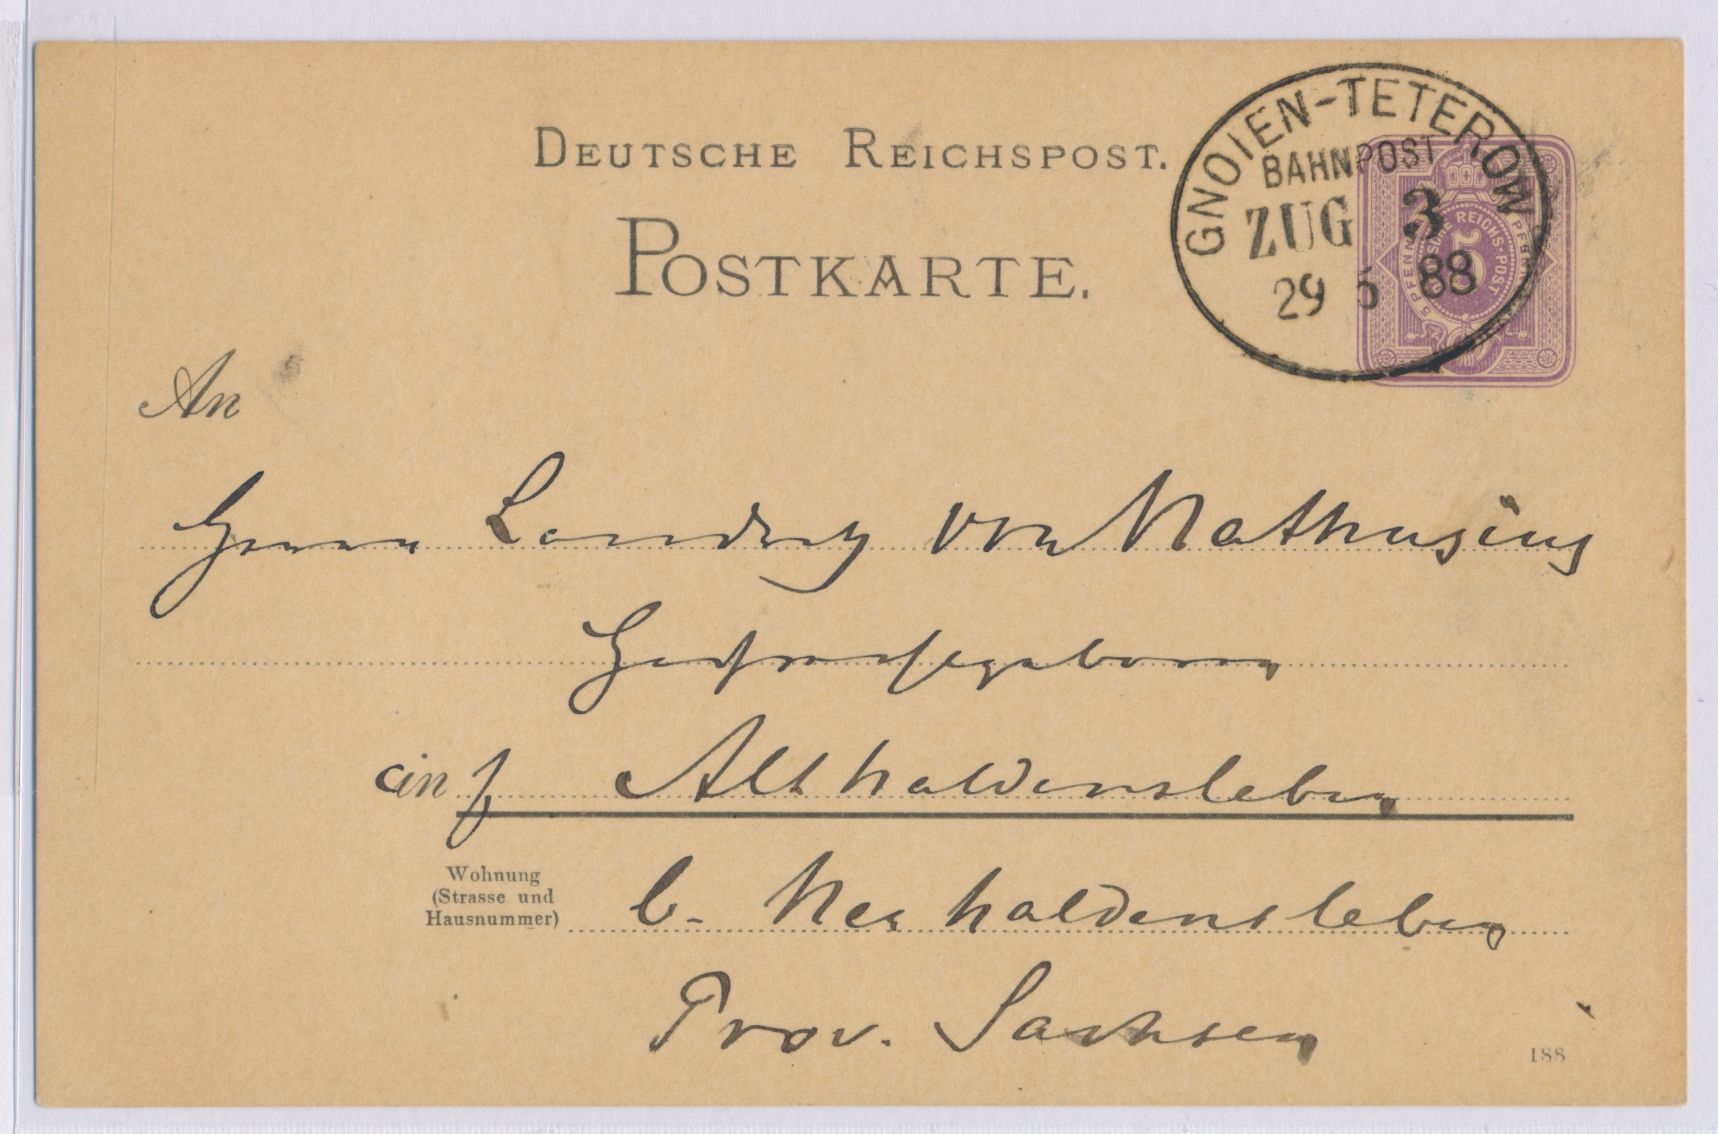 DEUTSCHE REICHSPOST.
POSTKARTE.
GNOIEN-TETEROW
BAHNPOST
ZUG 3
29 5 88
5 PFENNIG
DEUTSCHE REICHS-POST
5
An
Herrn Landrath von Nathusius
Hochwohlgeboren
in Althaldensleben
Wohnung
(Strasse und
Hausnummer)
b. Neuhaldensleben
Prov. Sachsen
188